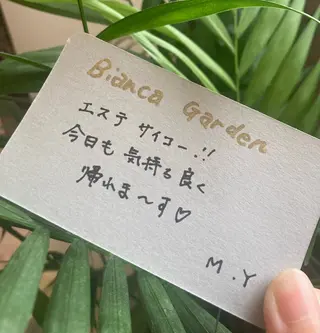 Bianca Garden
エステ サイコー!!
今日も 気持ち良く
帰れま〜す♡
M.Y